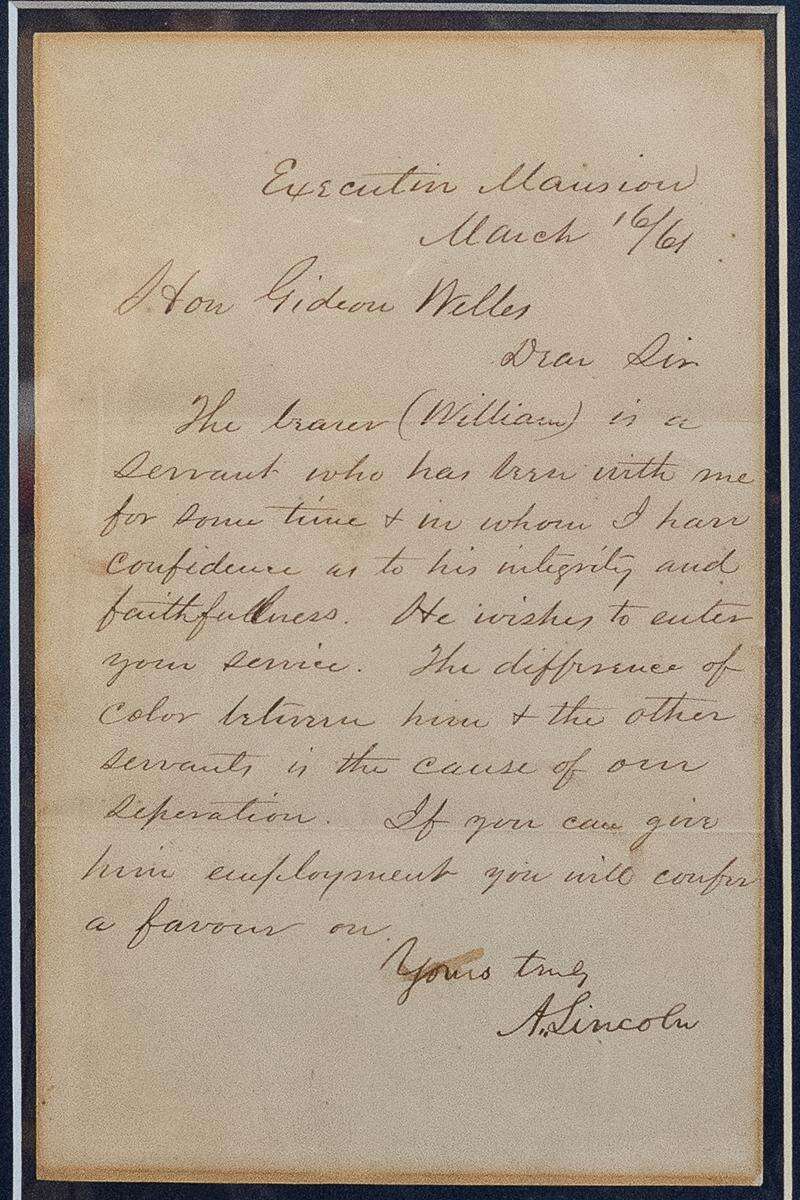 Executive Mansion
March 16/61
Hon Gideon Welles
Dear Sir
The bearer (William) is a
servant who has been with me
for some time & in whom I have
confidence as to his integrity and
faithfullness. He wishes to enter
your service. The difference of
color between him & the other
servants is the cause of our
seperation. If you can give
him employment you will confer
a favour on
Yours truly
A. Lincoln